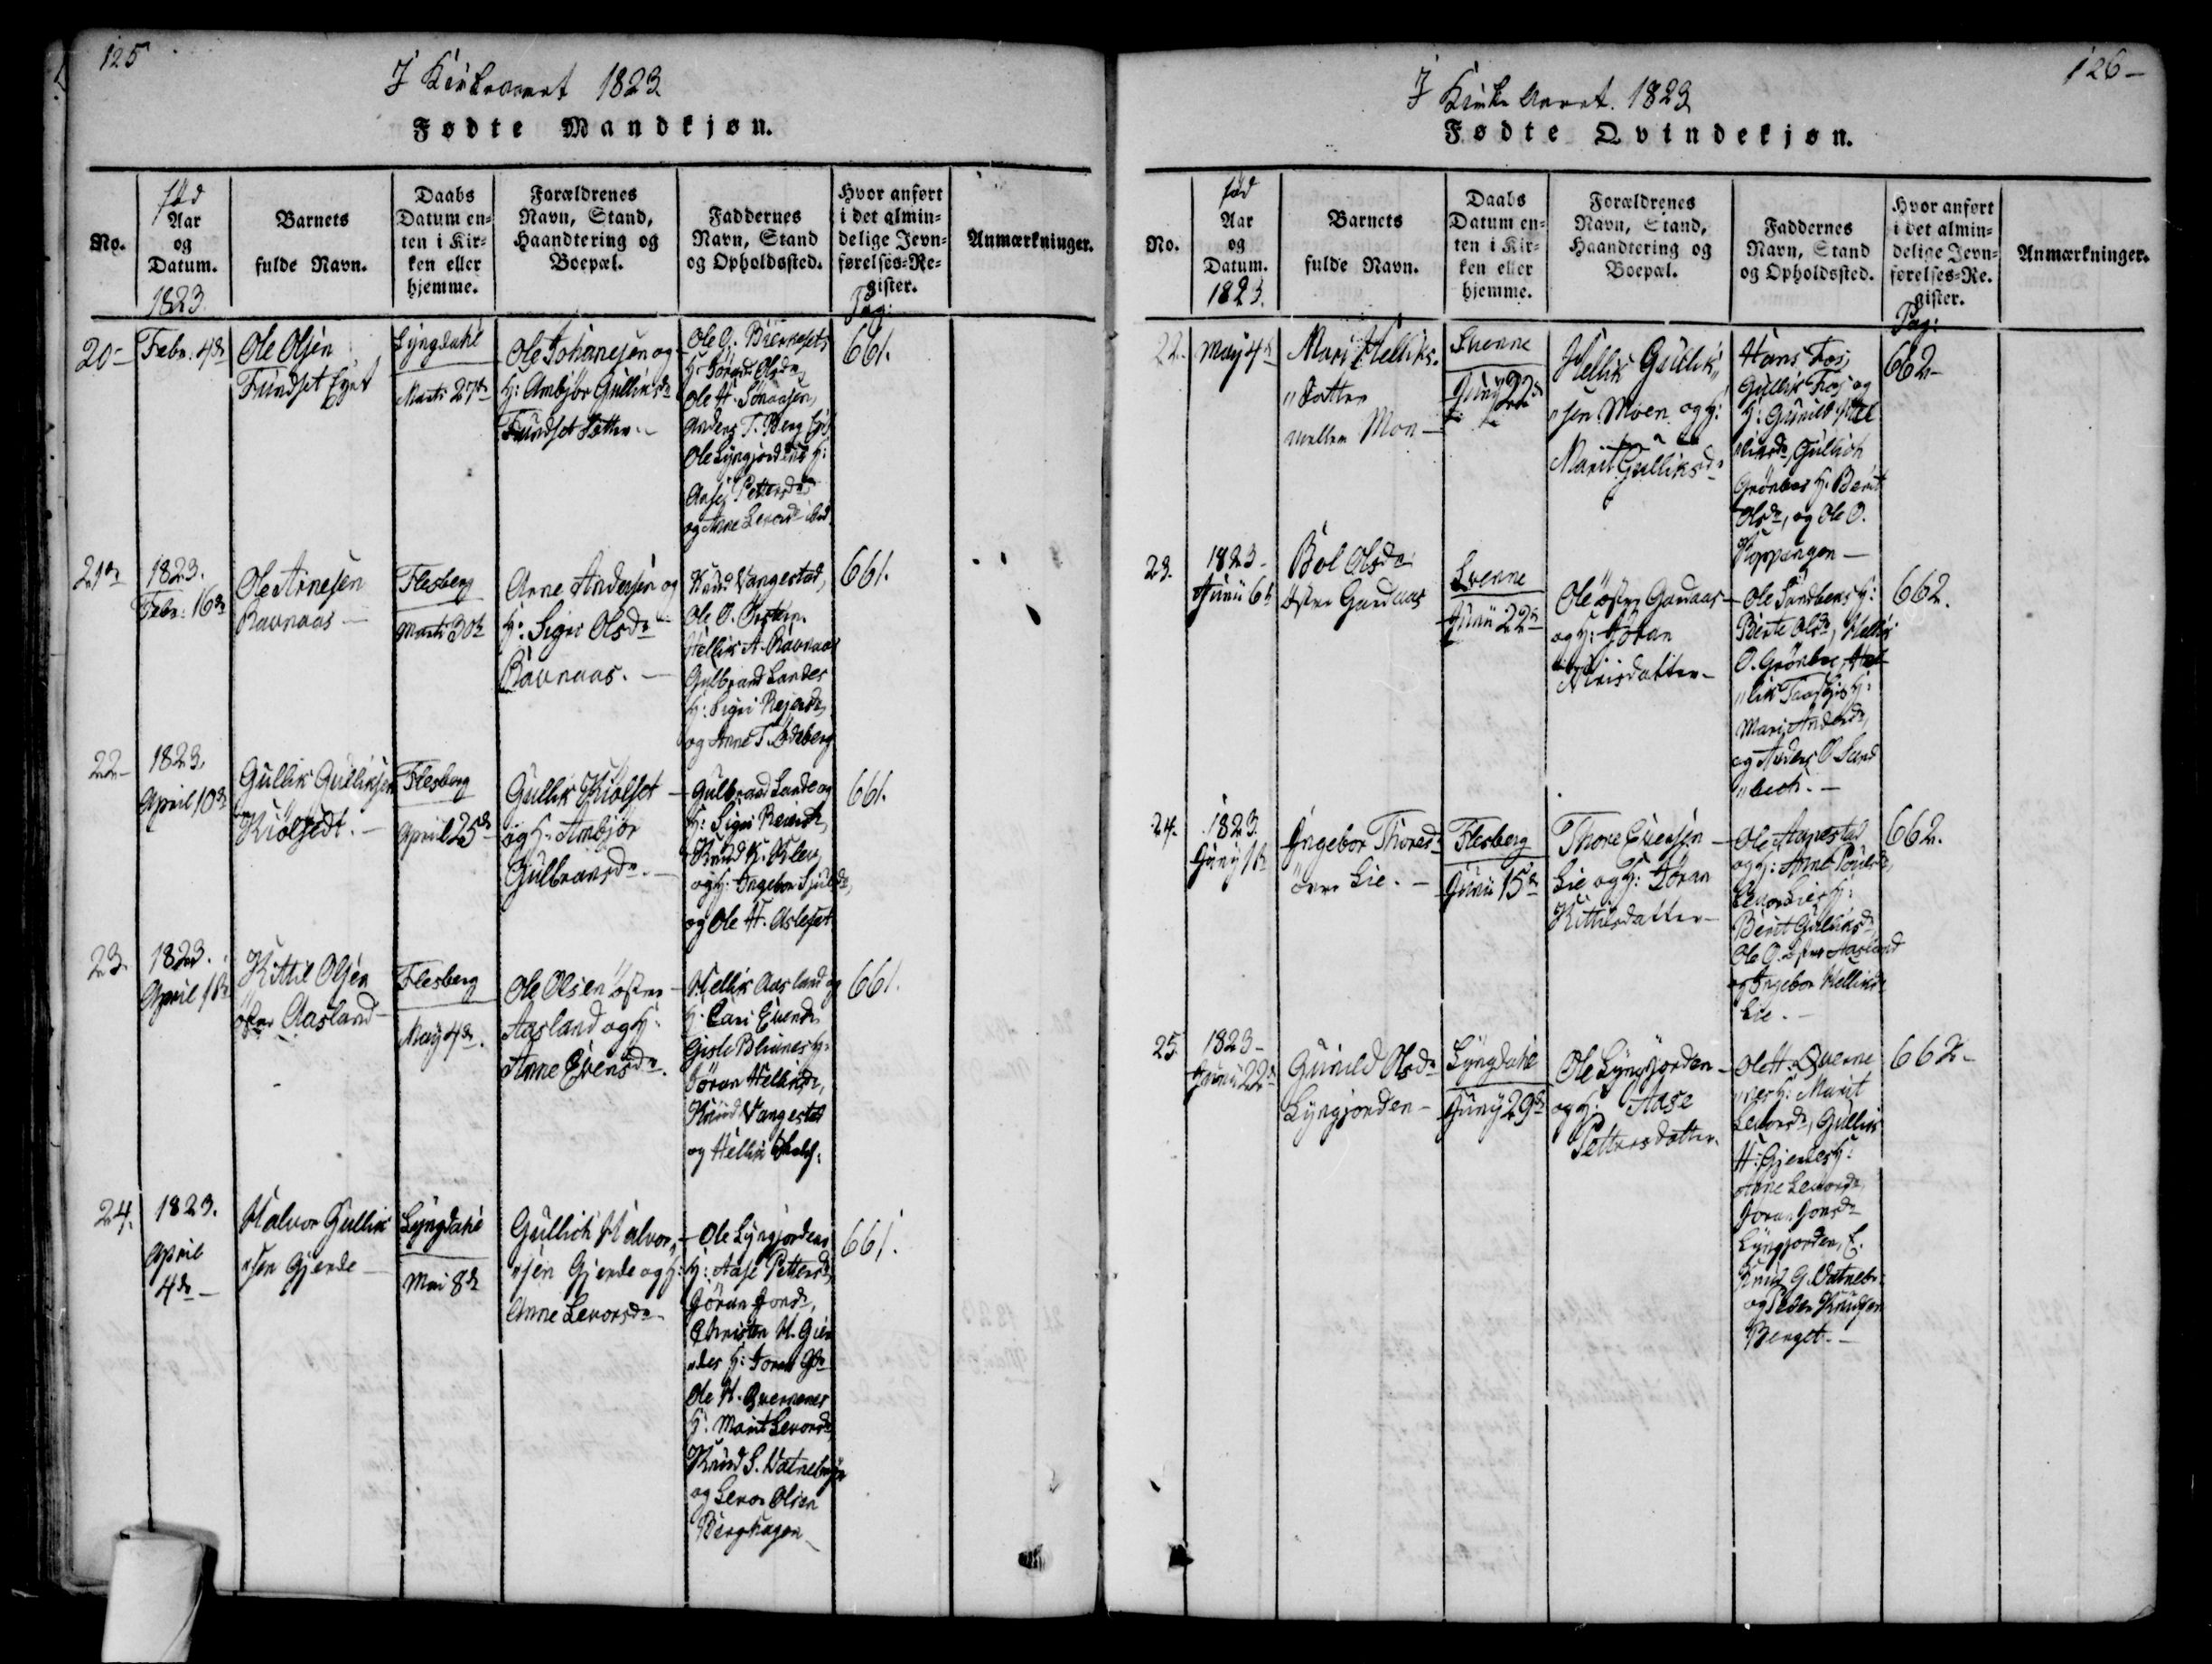 125
I Kirkeaaret 1823
Fødte Mandkjøn.
No.
fød
Aar
og
Datum.
1823
Barnets
fulde Navn.
Daabs
Datum en-
ten i Kir-
ken eller
hjemme.
Forældrenes
Navn, Stand,
Haandtering og
Boepæl.
Faddernes
Navn, Stand
og Opholdssted.
Hvor anført
i det almin-
delige Jevn-
førelses-Re-
gister.
Pag:
Anmærkninger.
20-
Febr: 4de
Ole Olsen
Fundset Eyet
Lyngdahl
Marts 27de
Ole Johanesen og
H: Ambjør Gulliksdr
Fundset
Ole O.
H: Jøran Olsdr
Ole H.
Anders T. Berg
Ole Lyngjorden H:
Aase Pettersdr
og Anne Levorsdr ibid
661.
21de
1823.
Febr: 16de
Ole Arnesen
Ravnaas -
Flesberg
Marts 30te
Arne Andersen og
H: Sigri Olsdr
Ravnaas. -
Knud Vangestad,
Ole O.
Hellik A. Ravnaas
Gulbrand Landes
H: Sigri Reiersdr,
og Anne T.
661.
22-
1823.
April 10de
Gullik Gulliksen
Kiølset. -
Flesberg
April 25de
Gullik Kiølset -
og H: Ambjør
Gulbransdr. -
Gulbrand Lande og
H: Sigri Reiersdr,
Knud K. Kleu
og H: Ingebor
og Ole H. Asleset
661.
23.
1823.
April
Kittil Olsen
østre Aasland -
Flesberg
May 4de.
Ole Olsen østre -
Aasland og H:
Anne Evensdr.
Hellik Aasland og
H: Cari Evensdr
Gisle Blinnes H:
Jøran Helliksdr,
Knud Vangestad
og Hellik
661.
24.
1823.
April
4de -
Halvor Gullik
"sen Gjerde -
Lyngdahl
Mai 8de
Gullich Halvor"
"sen Gjerde og H:
Anne Levorsdr
Ole Lyngjordens
H: Aase Pettersdr,
Gøran Jonsdr,
Christen H. Gier
"des H: Joran
Ole H. Qvernenes
H: Marit Levorsdr
Knud S.
og Levor Olsen
Berghagen -
661.
126-
I Kirke Aaret. 1823
Fødte Qvindekjøn.
No.
fød
Aar
og
Datum.
1823.
Barnets
fulde Navn.
Daabs
Datum en-
ten i Kir-
ken eller
hjemme.
Forældrenes
Navn, Stand,
Haandtering og
Boepæl.
Faddernes
Navn, Stand
og Opholdssted.
Hvor anført
i det almin-
delige Jevn-
førelses-Re-
gister.
Pag:
Anmærkninger.
22.
May 4de
Mari Helliks-
"datter
mellem Moen -
Svenne
Juny 22de
Hellik Gullik"
"sen Moen og H:
Marit Gulliksdr
Hans Fos,
Gullik Fos og
H: Gunild Hel
Gullich
Grønbæs H. Berit
Olsdr, og Ole O.
Hoppangen -
662-
23.
1823-
Junii 6te
Bol Olsdr
østre Gardaas
Svenne
Junii 22de
Ole østre Gardaas -
og H: Jøran
Nirisdatter -
Ole Sandbæks H:
Birte Olsdr, Hellik
O. Grønbæ, Hel
"lik Traaens H:
Mari Andersdr,
og Anders O. Sand
"bech. -
662.
24.
1823.
Juny 1ste
Ingebor Thoresdr
øvre Lie. -
Flesberg
Junii 15de
Thore Evensen -
Lie og H: Jøran
Kittilsdatter -
Ole Aanestad
og H: Anne Poulsdr,
Levor Lies H:
Berit Gulliksdr
Ole O. østre Aasland
og Ingebor Helliksdr
Lie. -
662.
25.
1823-
Junii 22de
Gunild Olsdr
Lyngjorden -
Lyngdahl
Juny 29de
Ole Lyngjorden -
og H: Aase
Pettersdatter.
Ole H. Qverne
"nes H: Marit
Levorsdr, Gullik
H. Gjerdes H:
Anne Levorsdr,
Joran Jonsdr
Lyngjorden, E.
Knud G. Vatnebr.
og Peder Knudsen
Berget. -
662-